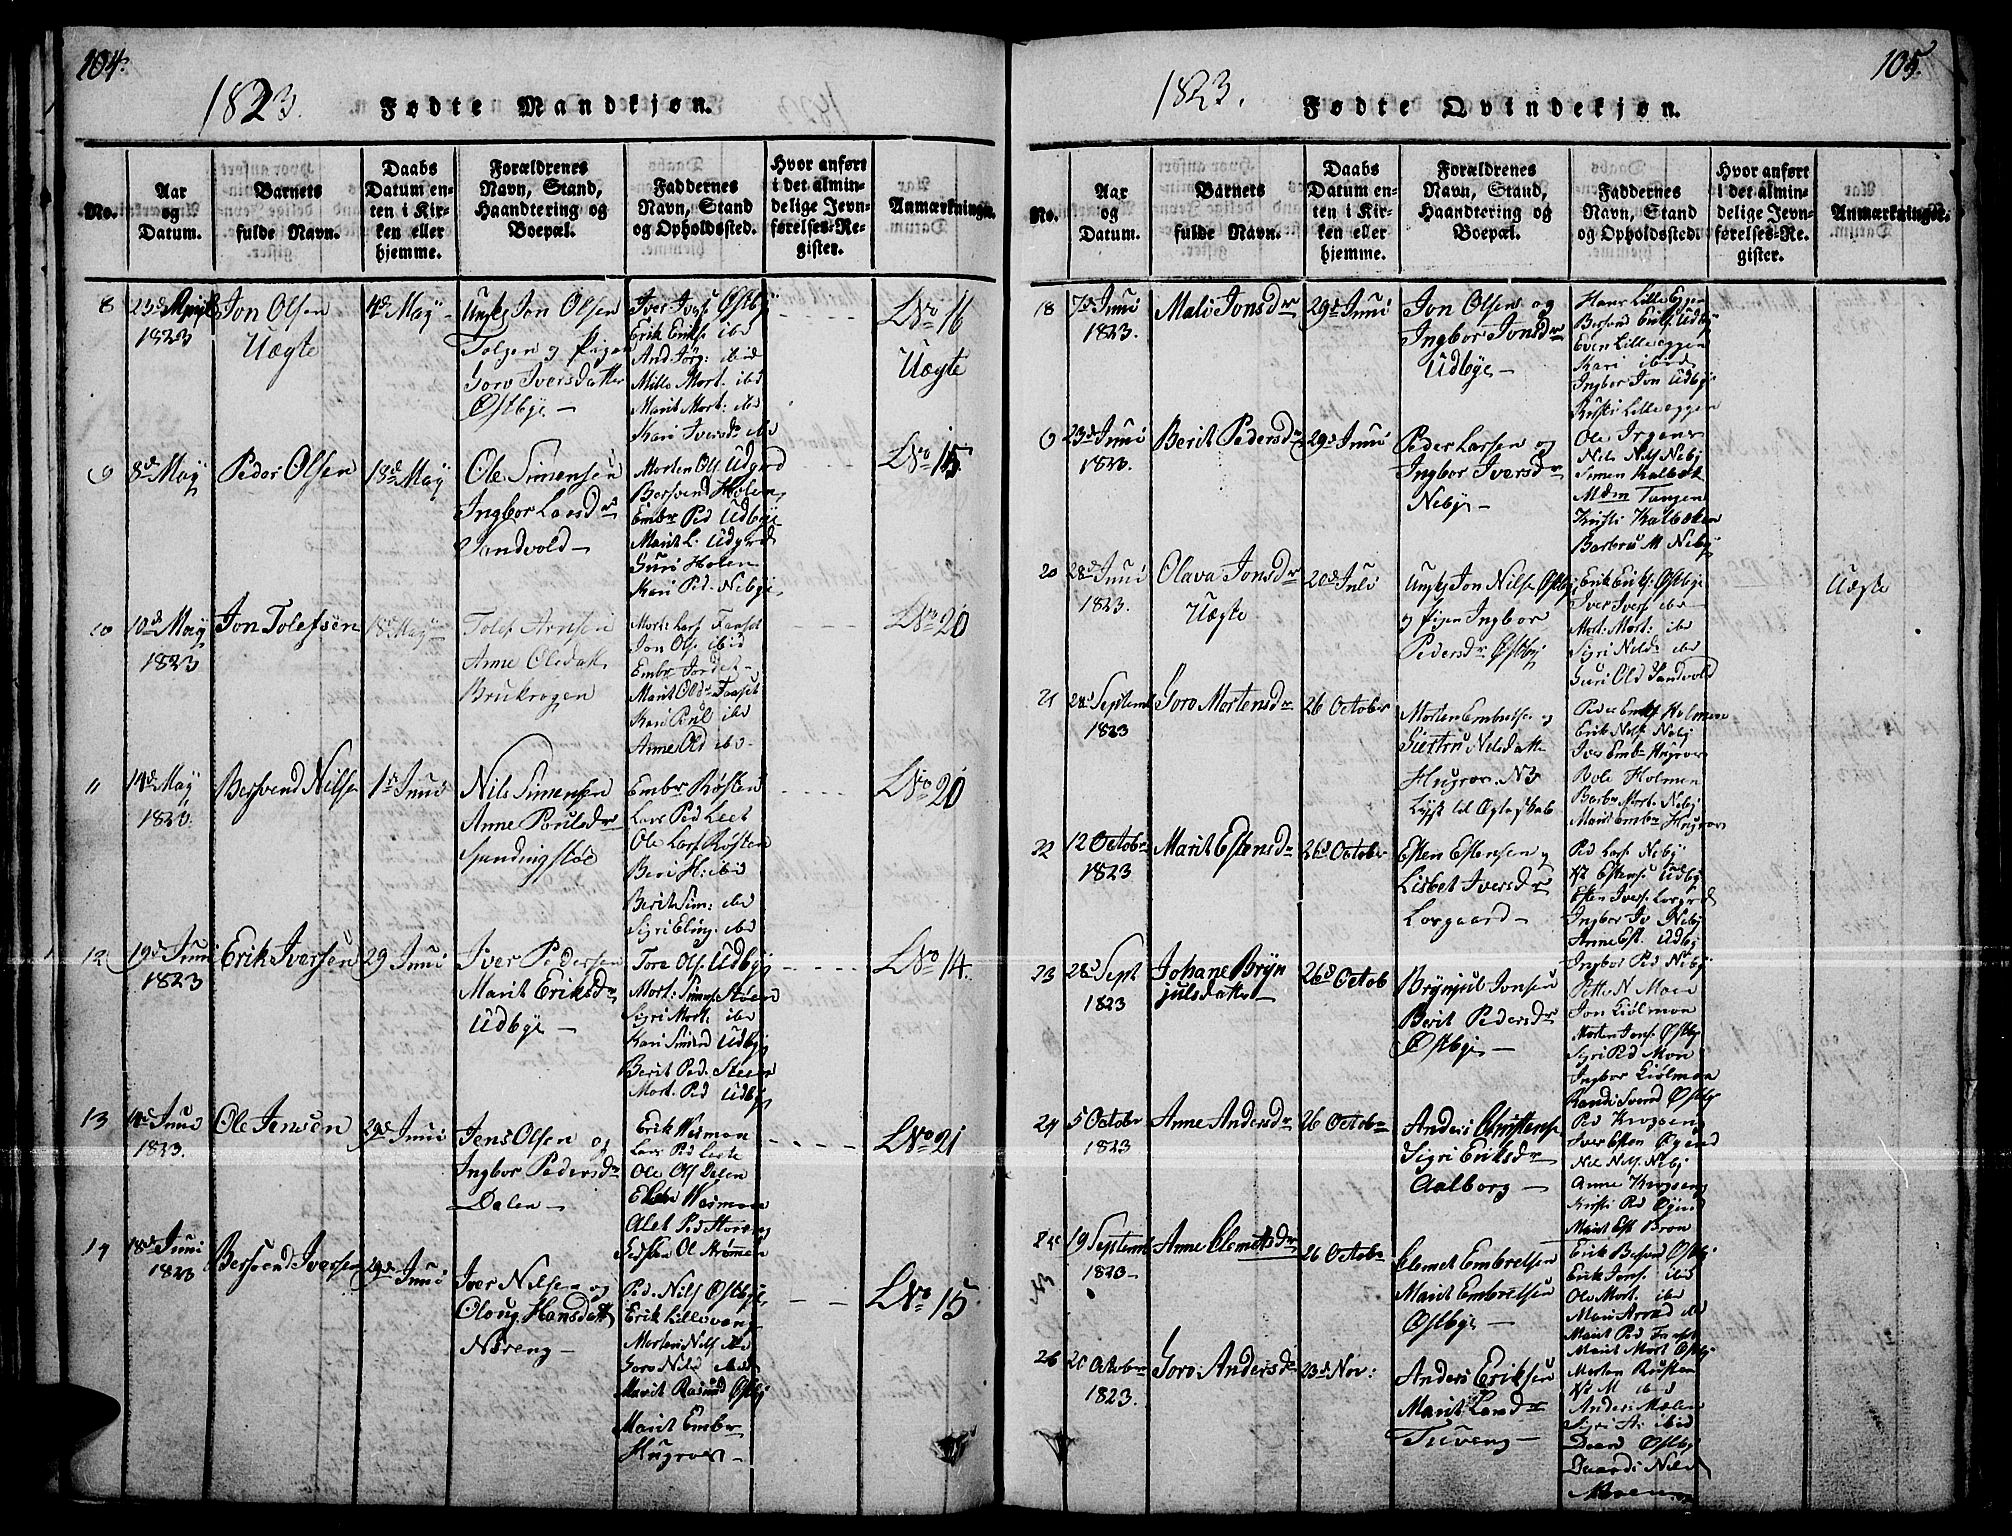 104.
1823. Fødte Mandkjøn.
No.
Aar og Datum.
Barnets fulde Navn.
Daabs Datum enten i Kirken eller hjemme.
Forældrenes Navn, Stand, Haandtering og Boepæl.
Faddernes Navn, Stand og Opholdssted.
Hvor anført i det almindelige Jevnførelses-Register.
Anmærkninger.
8
23d April
1823
Jon Olsen
Uægte
4d Maÿ
Ungk. Jon Olsen
Tolgen og Pigen
Goro Iversdatter
Østbye
Iver Ivers Østbÿ
Erik Eriks. ibid
And Jørg: ibid
Mille Mort. ibd
Marit Mort: ibd
Kari Iversdr ibd
LNo 16
Uægte
9
8d Maÿ
Peder Olsen
18d Maÿ
Ole Simensen
Ingbor Larsdr
Sandvold
Morten Ols Udgrd
Bersvend Holen
Embr Ped Udbÿe
Marit L. Udgrd
Guri Holen
Kari Ped. Nebÿe
LNo 15
10
10d Maÿ
1823
Jon Tolefsen
18d Maÿ
Tolef Arnsen
Anne Olsdatt
Brukrogen
Mort. Lars Faaset
Jon Ols. ibid
Embr Jordet
Marit Oldr Faaset
Kari Poul ibd
Anne Old ibd
LNo 20
11
14d Maÿ
1823.
Bersvend Nilsen
1d Junii
Nils Simensen
Anne Poulsdr
Embr Røsten
Lars Ped Leet
Ole Lars Røsten
Beri H: ibd
Berit Sim: ibd
Sigri Eling. ibd
LNo 20
12
19d Junii
1823
Erik Iversen
29 Junii
Iver Pedersen
Marit Eriksdr
Udbye
Tore Ols. Udbÿ
Mort: Simens Støen
Sigri Mort: ibd
Kari Simend Udbÿ
Berit Ped. Støen
Mort. Ped Udbÿ
LNo 14.
13
14d Junii
1823.
Ole Jensen
29d Junii
Jens Olsen og
Ingbor Pedersdr
Dalen
Erik Wesmoe
Lars Ped Leete
Ole Ols Dalen
LNo 21
14
18d Junii
1823
Bersvend Iversen
29d Junii
Iver Nilsen og
Oloug Hansdatt
Nøreng
Ped. Nils Østbÿe
Erik Lillevang
Morten Nils ibd
Goro Nild ibid
Marit Rasmd Østbÿ
Marit Embr
Hugroen
LNo 15.
105.
1823. Fødte Qvindekjøn.
No.
Aar og Datum.
Barnets fulde Navn.
Daabs Datum enten i Kirken eller hjemme.
Forældrenes Navn, Stand, Haandtering og Boepæl.
Faddernes Navn, Stand og Opholdssted.
Hvor anført i det almindelige Jevnførelses-Register.
Anmærkninger.
18
7d Junii
1823.
Mali Jonsdr
29d Junii
Jon Olsen og
Ingbor Jonsdr
Udbÿe
Hans Lille Eggen
Bersvend Eriks Udbÿ
Even Lilleeggen
Kari ibid
Ingbor Jon Udbÿ
Kirsti Lilleeggen
23d Junii
1823.
Berit Pedersdr
29d Junii
Peder Larsen og
Ingbor Iversdr
Nebÿe
Ole Irgens
Nils Nils Nebÿ
Simen Kalbæk
Mdm Tangen
Kirsti Kalbæken
Barbrue M Nebÿ
20
28d Junii
1823.
Olava Jonsdr
Uægte
20d Juli
Ungk Jon Nilsen Østbÿ
og Pigen Ingbor
Pedersdr Østbÿ
Erik Eriks: Østbÿe
Iver Ivers ibd
Mort: Mort: ibd
Sigri Nilsdr ibd
Guri Old Sandvold
Uægte
21
28d Septemb
1823
Goro Mortensdr
26 October
Morten Embretsen og
Giertru Nilsdatt
Hugroe. NB
Lÿst til Ægteskab
Peder Embr Holmen
Erik Nils. Nebÿ
Iver Emb Hugroe
Bole Holmen
Barbr Mort. Nebÿ
Marit Embr Hugroe
22
12 Octobr
1823
Marit Estensdr
26d October
Esten Estensen og
Lisbet Iversdr
Lorgaard
Ped Lars Nebÿ
Esten Ivers. Lorgrd
Ingbor Iv Nebÿ
Anne Est. Udbÿ
Ingbor Ped Nebÿ
23
28d Sept
1823
Johane Brÿn
julsdatter
26d Octob
Brÿnjul Jonsen
Berit Pedersdr
Østbÿe
Petter N Moen
Jon Kiølmoe
Morten Jons. Østbÿ
Sigri Ped Moen
Ingbor Kiølmoe
Randi Svend Østbÿ
24
5 October
1823
Anne Andersdr
26 Octobr
Anders Christens
Sigri Eriksdr
Aalborg
Ped Krogeng
Iver Esten Øgaard
Nils Nils. Nebÿ
Anne Krogeng
Kirsti Ped Øgaard
Marit Est Broen
19 Septemb
1823
Anne Clemetsdr
26 Octobr
Clemet Embretsen
Marit Embretsen
Østbÿe
Erik Besvend Østbÿ
Erik Jons. ibid
Ole Mort. ibd
Marit Ped Faaset
Marit Mort Østbÿ
26
20 October
1823.
Goro Andersdr
23d Nov:
Anders Eriksen
Marit Larsdr
Tuveng
Morten Røsten
Anders Moen
Sigri A: ibid
Daard Østbÿ
Nils
Moen